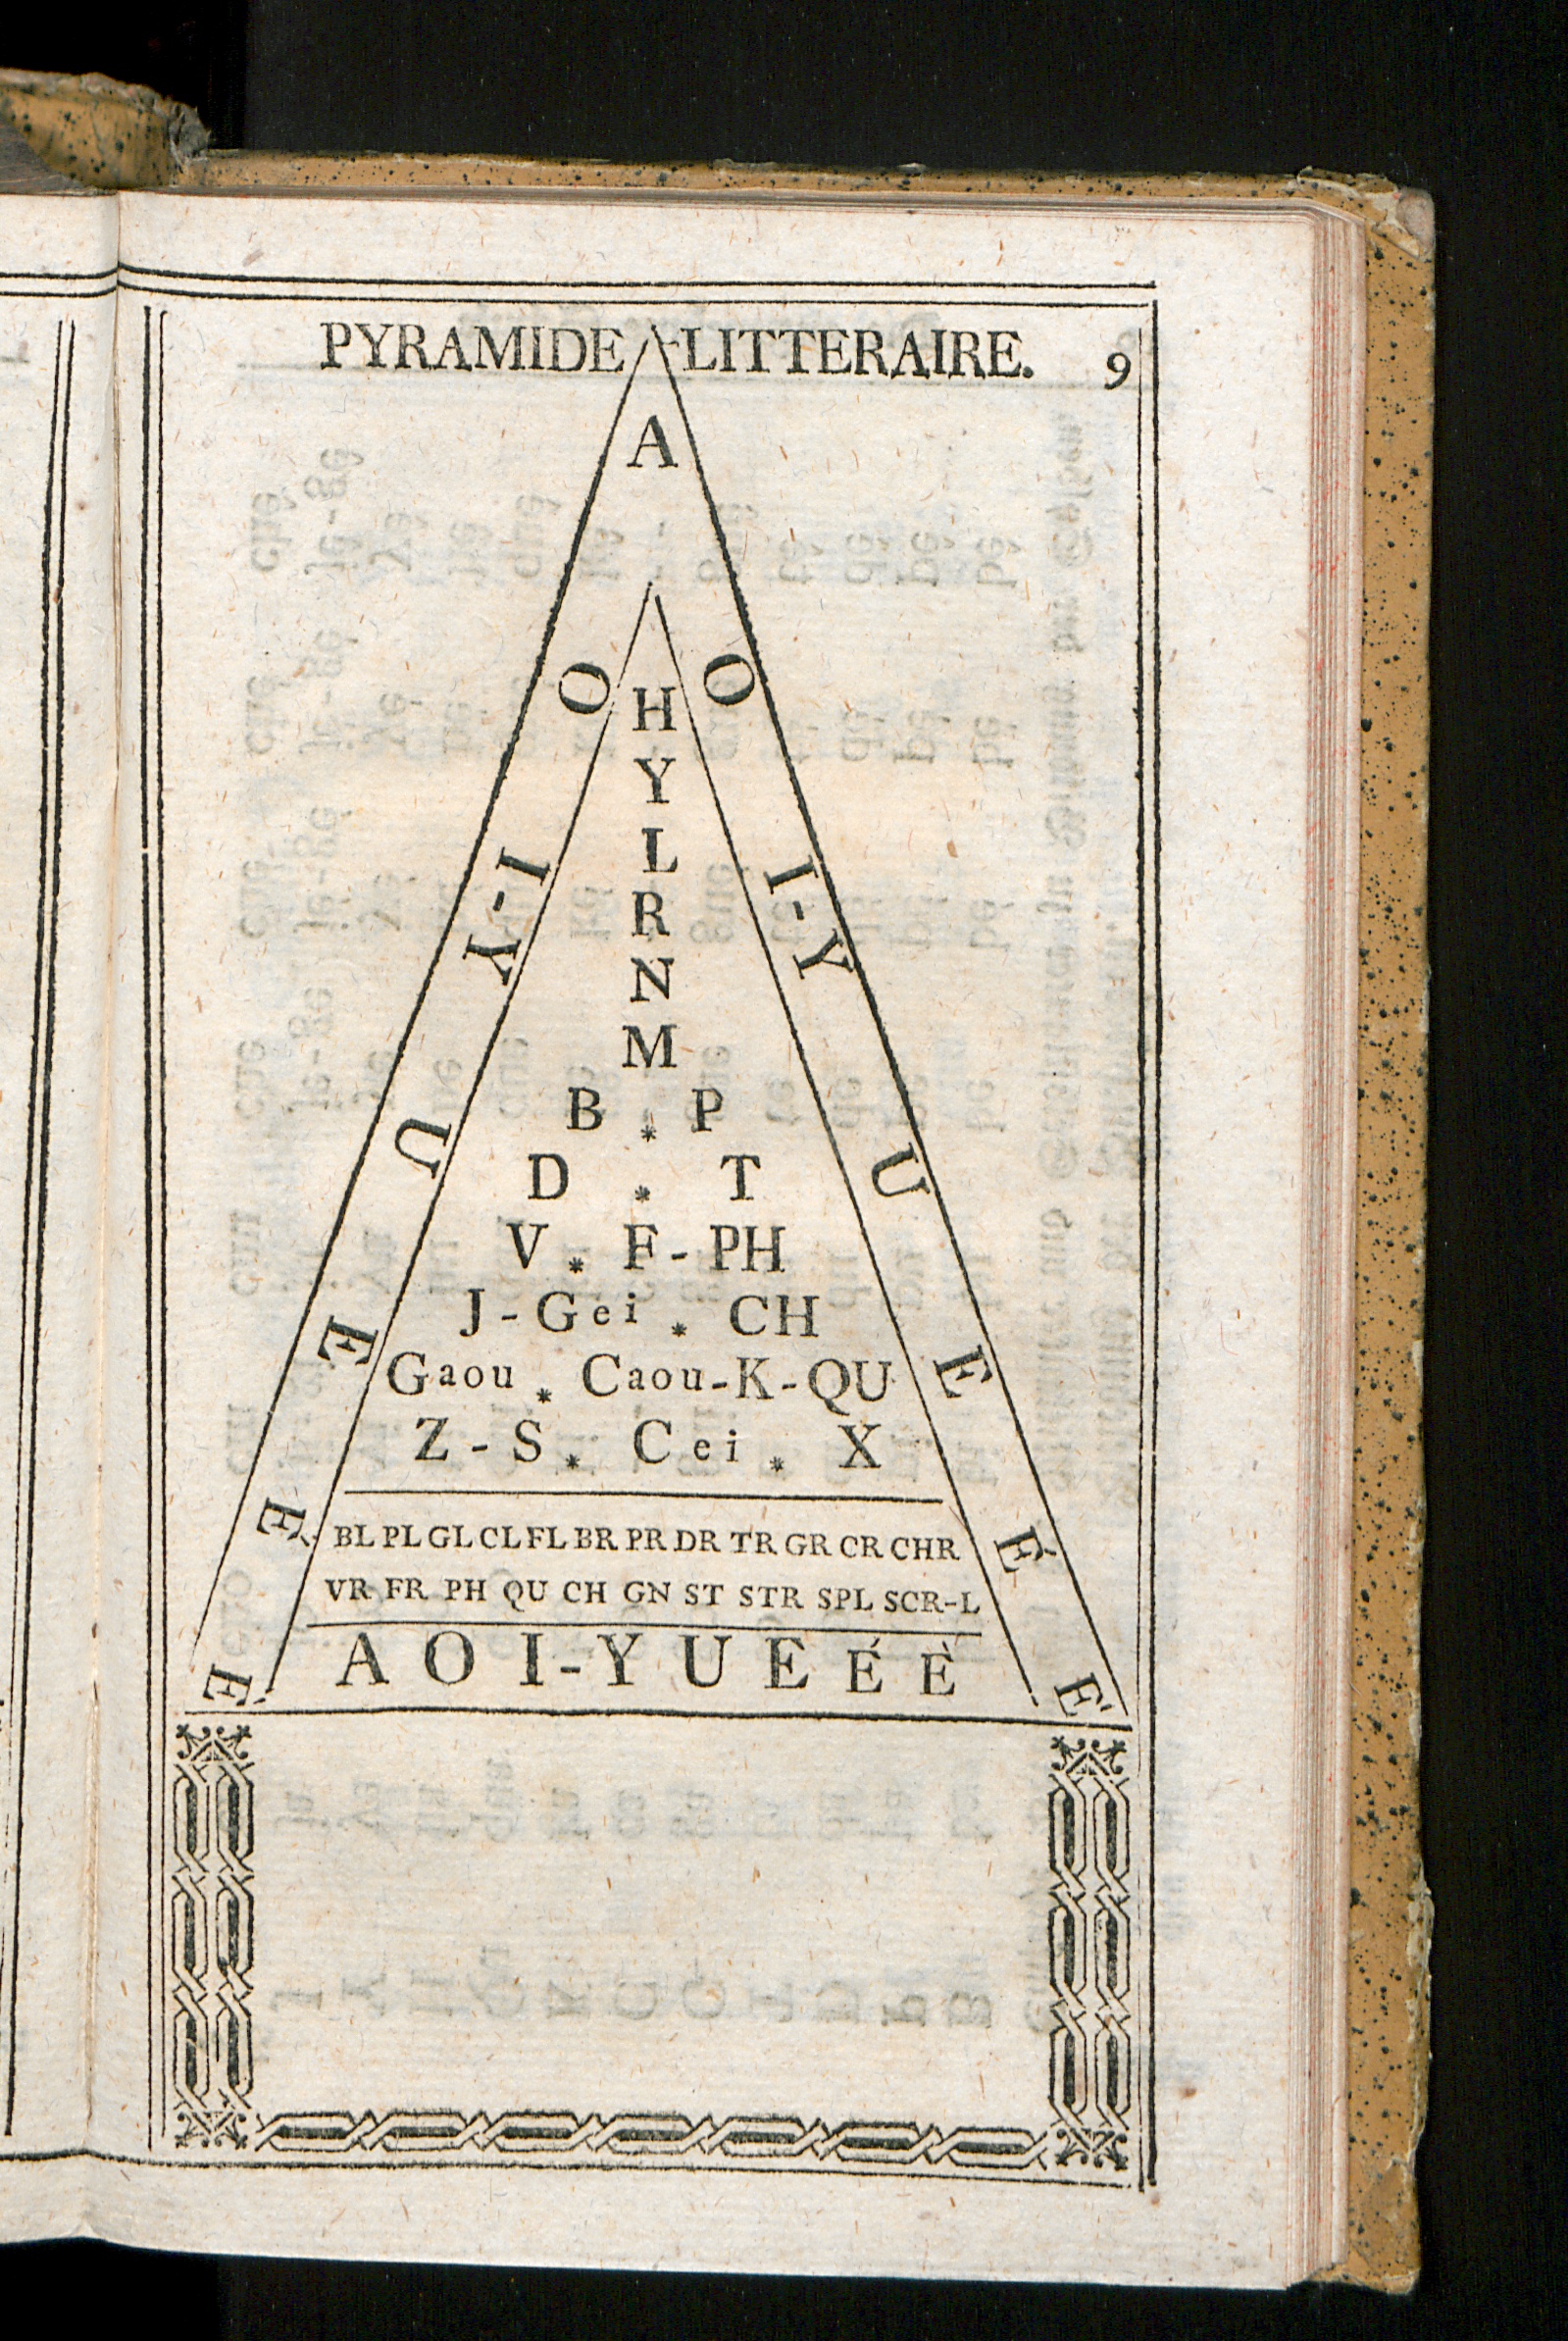 PYRAMIDE LITTERAIRE. 9
A
O O
H
Y
L
I-Y I-Y
R
N
M
B * P
U U
D * T
V * F-PH
J-Gei * CH
E E
Gaou * Caou-K-QU
Z-S * Cei * X
É É
BL PL GL CL FL BR PR DR TR GR CR CHR
VR FR PH QU CH GN ST STR SPL SCR-L
A O I-Y U E É È
È È